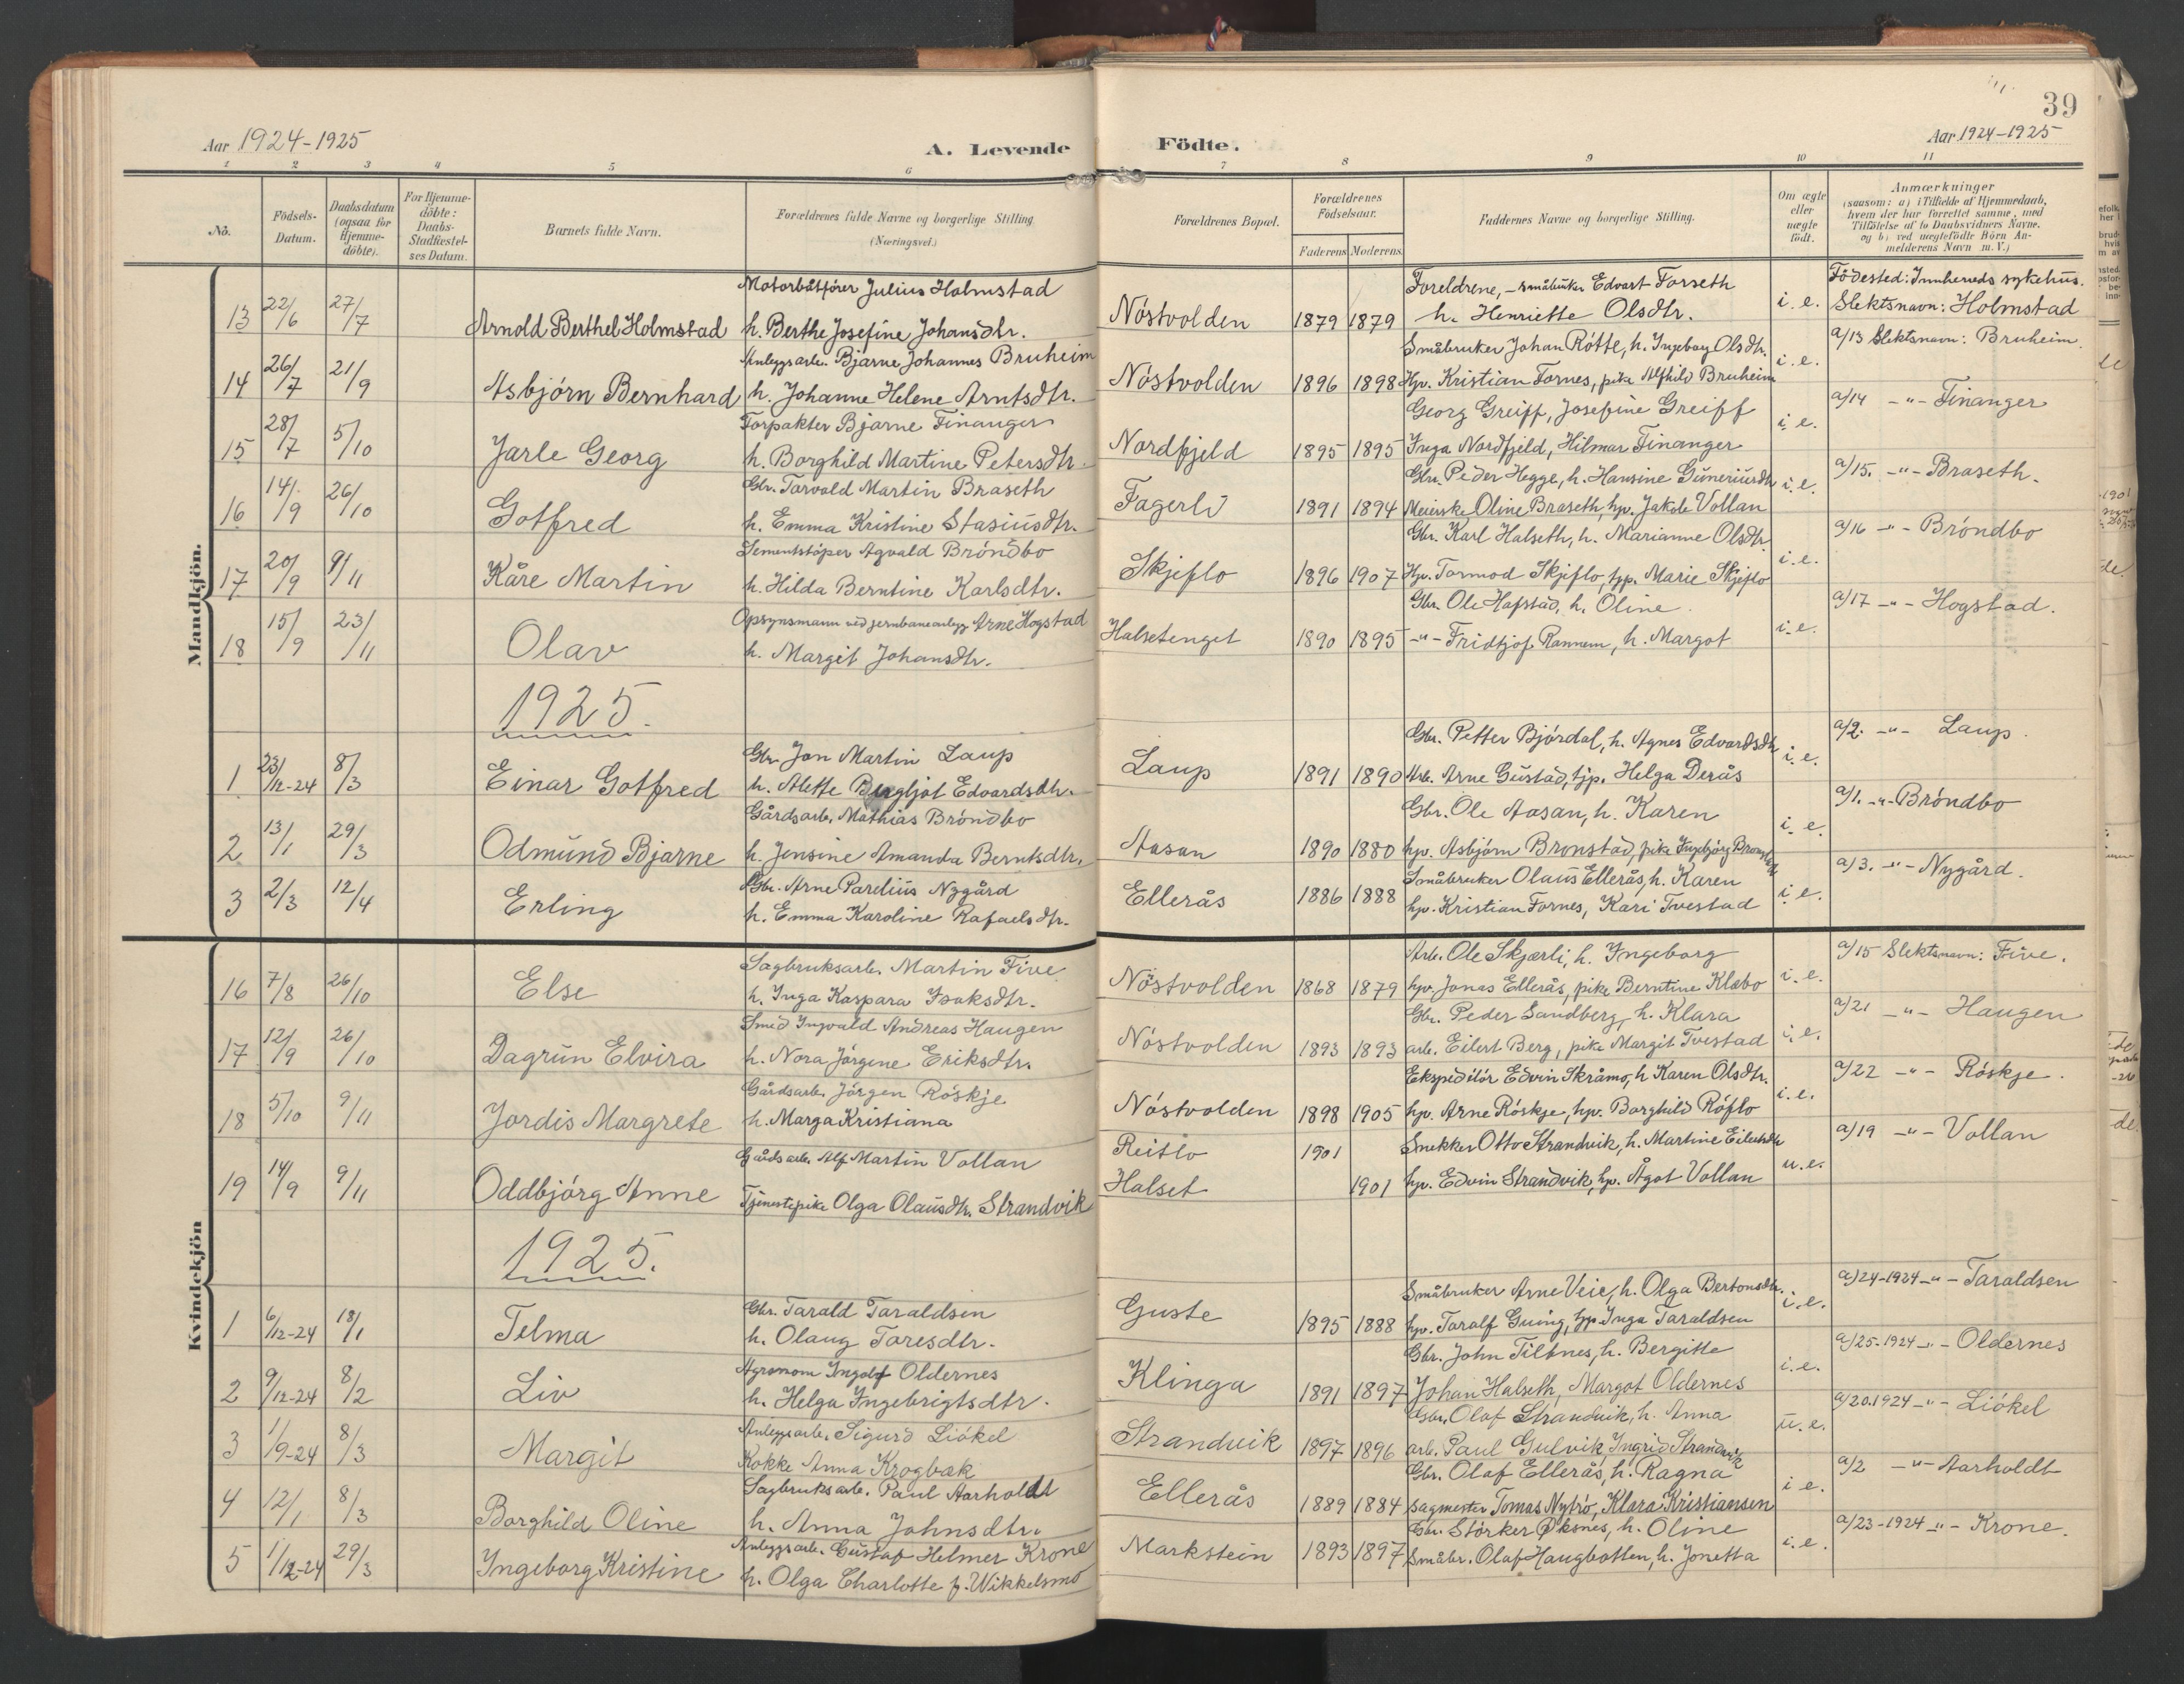 39
Aar 1924-1925
A. Levende Födte.
Aar 1924-1925
1 2 3 4 5 6 7 8 9 10 11
Nö.
Födsels-Datum.
Daabsdatum (ogsaa for Hjemme-döbte).
For Hjemme-döbte: Daabs-Stadfæstel-ses Datum.
Barnets fulde Navn.
Forældrenes fulde Navne og borgerlige Stilling (Næringsvei.)
Forældrenes Bopæl.
Forældrenes Födselsaar.
Faderens Moderens
Faddernes Navne og borgerlige Stilling.
Om ægte eller uægte födt.
Anmærkninger
(saasom: a) i Tilfælde af Hjemmedaab, hvem der har forrettet samme, med Tilföielse af to Daabsvidners Navne, og b) ved uægtefödte Börn An-melderens Navn m. V.)
Mandkjön.
Motorbåtfører Julius Holmstad Foreldrene, - småbruker Edvart Forseth Födested: Innherreds sykehus.
13 22/6 27/7 Arnold Berthel Holmstad h. Berthe Josefine Johansdtr. Nöstvolden 1879 1879 h. Henriette Olsdtr. i. e. Slektsnavn: Holmstad
Anleggsarb. Bjarne Johannes Bruheim Småbruker Johan Rötte, h. Ingeborg Olsdtr. a/13 Slektsnavn: Bruheim.
14 26/7 21/9 Asbjörn Bernhard h. Johanne Helene Arntsdtr. Nöstvolden 1896 1898 Hp. Kristian Fornes, pike Alfhild Bruheim i. e.
Forpakter Bjarne Finanger Georg Greiff, Josefine Greiff a/14 -"- Finanger
15 28/7 5/10 Jarle Georg h. Borghild Martine Petersdtr. Nordfjeld 1895 1895 Inga Nordfjeld, Hilmar Finanger i. e.
Gbr. Torvald Martin Braseth Gbr. Peder Hegge, h. Hansine Guneriusdtr a/15. -"- Braseth.
16 14/9 26/10 Gotfred h. Emma Kristine Stasiusdtr. Fagerli 1891 1894 Meierske Oline Braseth, hp. Jakob Vollan i. e.
Sementstöper Agvald Bröndbo Gbr. Karl Halseth, h. Marianne Olsdtr. a/16 -"- Bröndbo
17 20/9 9/11 Kåre Martin h. Hilda Berntine Karlsdtr. Skjeflo 1896 1907 Hp. Tormod Skjeflo, tjp. Marie Skjeflo i. e.
Opsynsmann ved jernbaneanlegg Arne Hogstad Gbr. Ole Hafstad, h. Oline a/17 -"- Hogstad.
18 15/9 23/11 Olav h. Margit Johansdtr. Halsetenget 1890 1895 -"- Fridtjof Rannem, h. Margot i. e.
1925.
Gbr Jon Martin Laup Gbr. Petter Björdal, h. Agnes Edvardsdtr a/2. -"- Laup.
1 23/12-24 8/3 Einar Gotfred h. Alette Bergljot Edvardsdtr. Laup 1891 1890 Arb. Arne Gustad, tjp. Helga Derås i. e.
Gårdsarb. Mathias Bröndbo Gbr. Ole Aasan, h. Karen a/1. -"- Bröndbo
2 13/1 29/3 Odmund Bjarne h. Jensine Amanda Berntsdtr. Aasan 1890 1880 hp. Asbjörn Bronstad, pike Ingebjörg Bronstad i. e.
Gbr. Arne Parelius Nygård Småbruker Olaus Ellerås, h. Karen a/3. -"- Nygård.
3 2/3 12/4 Erling h. Emma Karoline Rafaelsdtr. Ellerås 1886 1888 hp. Kristian Fornes, Kari Tvestad i. e.
Kvindekjön
Sagbruksarb. Martin Five Arb. Ole Skjærli, h. Ingeborg a/15 Slektsnavn: Five.
16 7/8 26/10 Else h. Inga Kaspara Isaksdtr. Nöstvolden 1868 1879 hp. Jonas Ellerås, pike Berntine Klæbo i. e.
Smed Ingvald Andreas Haugen Gbr. Peder Sandberg, h. Klara a/21 -"- Haugen
17 12/9 26/10 Dagrun Elvira h. Nora Jörgine Eriksdtr. Nöstvolden 1893 1893 arb. Eilert Berg, pike Margit Tvestad i. e.
Gårdsarb. Jörgen Röskje Ekspeditör Edvin Skråmo, h Karen Olsdtr. a/22 -"- Röskje.
18 5/10 9/11 Jordis Margrete h. Marga Kristiana Nöstvolden 1898 1905 hp. Arne Röskje, hp. Borghild Röflo i. e.
Gårdsarb. Alf Martin Vollan Reitlo 1901 Snekker Otto Strandvik, h. Martine Eilertsdtr a/19 -"- Vollan
19 14/9 9/11 Oddbjörg Anne Tjenestepike Olga Olausdtr. Strandvik Halset 1901 hp. Edvin Strandvik, hp. Ågot Vollan u. e.
1925.
Gbr. Tarald Taraldsen Småbruker Arne Veie, h. Olga Bertonsdtr. a/24-1924 -"- Taraldsen
1 6/12-24 18/1 Telma h. Olaug Toresdtr. Guste 1895 1888 hp. Toralf Guing, tjp. Inga Taraldsen i. e.
Agronom Ingolf Oldernes Gbr. John Tilbnes, h. Bergitte a/25-1924 -"- Oldernes
2 9/12-24 8/2 Liv h. Helga Ingebrigtsdtr. Klinga 1891 1897 Johan Halseth, Margot Oldernes i. e.
Anleggsarb. Sigurd Liökel Gbr. Olaf Strandvik, h. Anna a/20.1924 -"- Liökel
3 1/9-24 8/3 Margit Kokke Anna Krogbæk Strandvik 1897 1896 arb. Paul Gulvik, Ingrid Strandvik u. e.
Sagbruksarb. Paul Aarholdt Gbr. Olaf Ellerås, h. Ragna a/2 -"- Aarholdt
4 12/1 8/3 Borghild Oline h. Anna Johnsdtr. Ellerås 1889 1884 sagmester Tomas Nytrö, Klara Kristiansen i. e.
Anleggsarb. Gustaf Helmer Krone Gbr. Störker Öksnes, h. Oline a/23-1924 -"- Krone.
5 1/12-24 29/3 Ingeborg Kristine h. Olga Charlotte f. Wikkelsmo Markstein 1893 1897 Småbr. Olaf Haugbotten, h. Jonetta i. e.